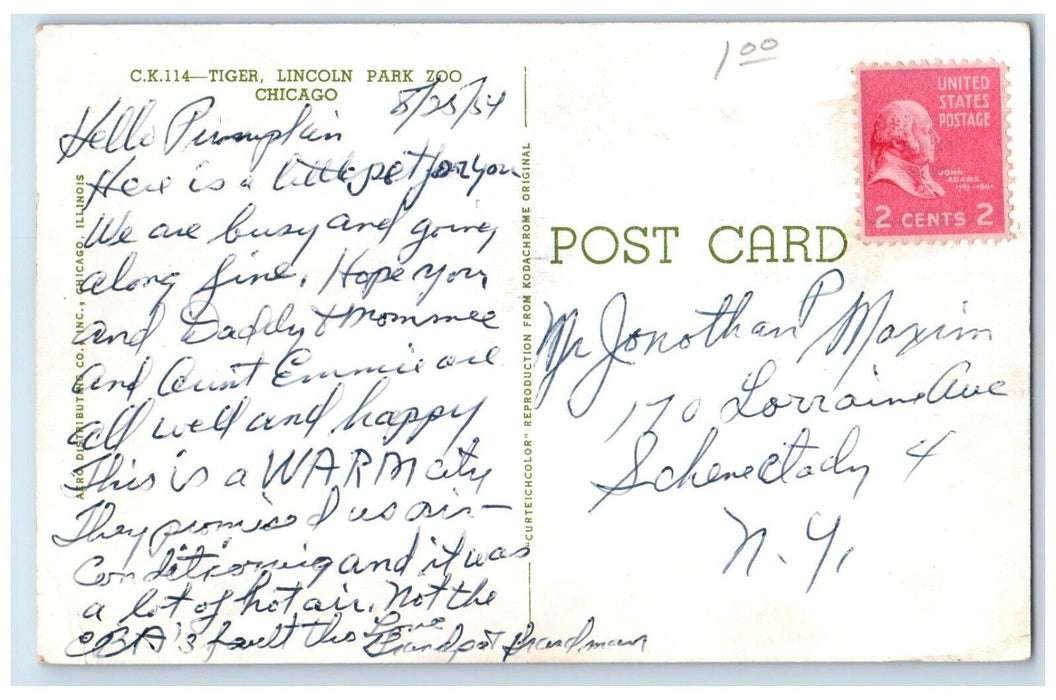 C.K.114—TIGER, LINCOLN PARK ZOO
CHICAGO
8/25/54
Hello Pumpkin
Here is a little pet for you
We are busy and going
along fine. Hope you
and Daddy & Mommee
and Aunt Emmie are
all well and happy
This is a WARM city
They promised us air-
conditioning and it was
a lot of hot air. Not the
CBA's fault tho Love
Grandpa & Grandmaw
AERO DISTRIBUTING CO., INC., CHICAGO, ILLINOIS
"CURTEICHCOLOR" REPRODUCTION FROM KODACHROME ORIGINAL
1 00
UNITED
STATES
POSTAGE
JOHN
ADAMS
1797-1801
2 CENTS 2
POST CARD
Mr Jonothan P Maxim
170 Lorraine Ave
Schenectady 4
N.Y.